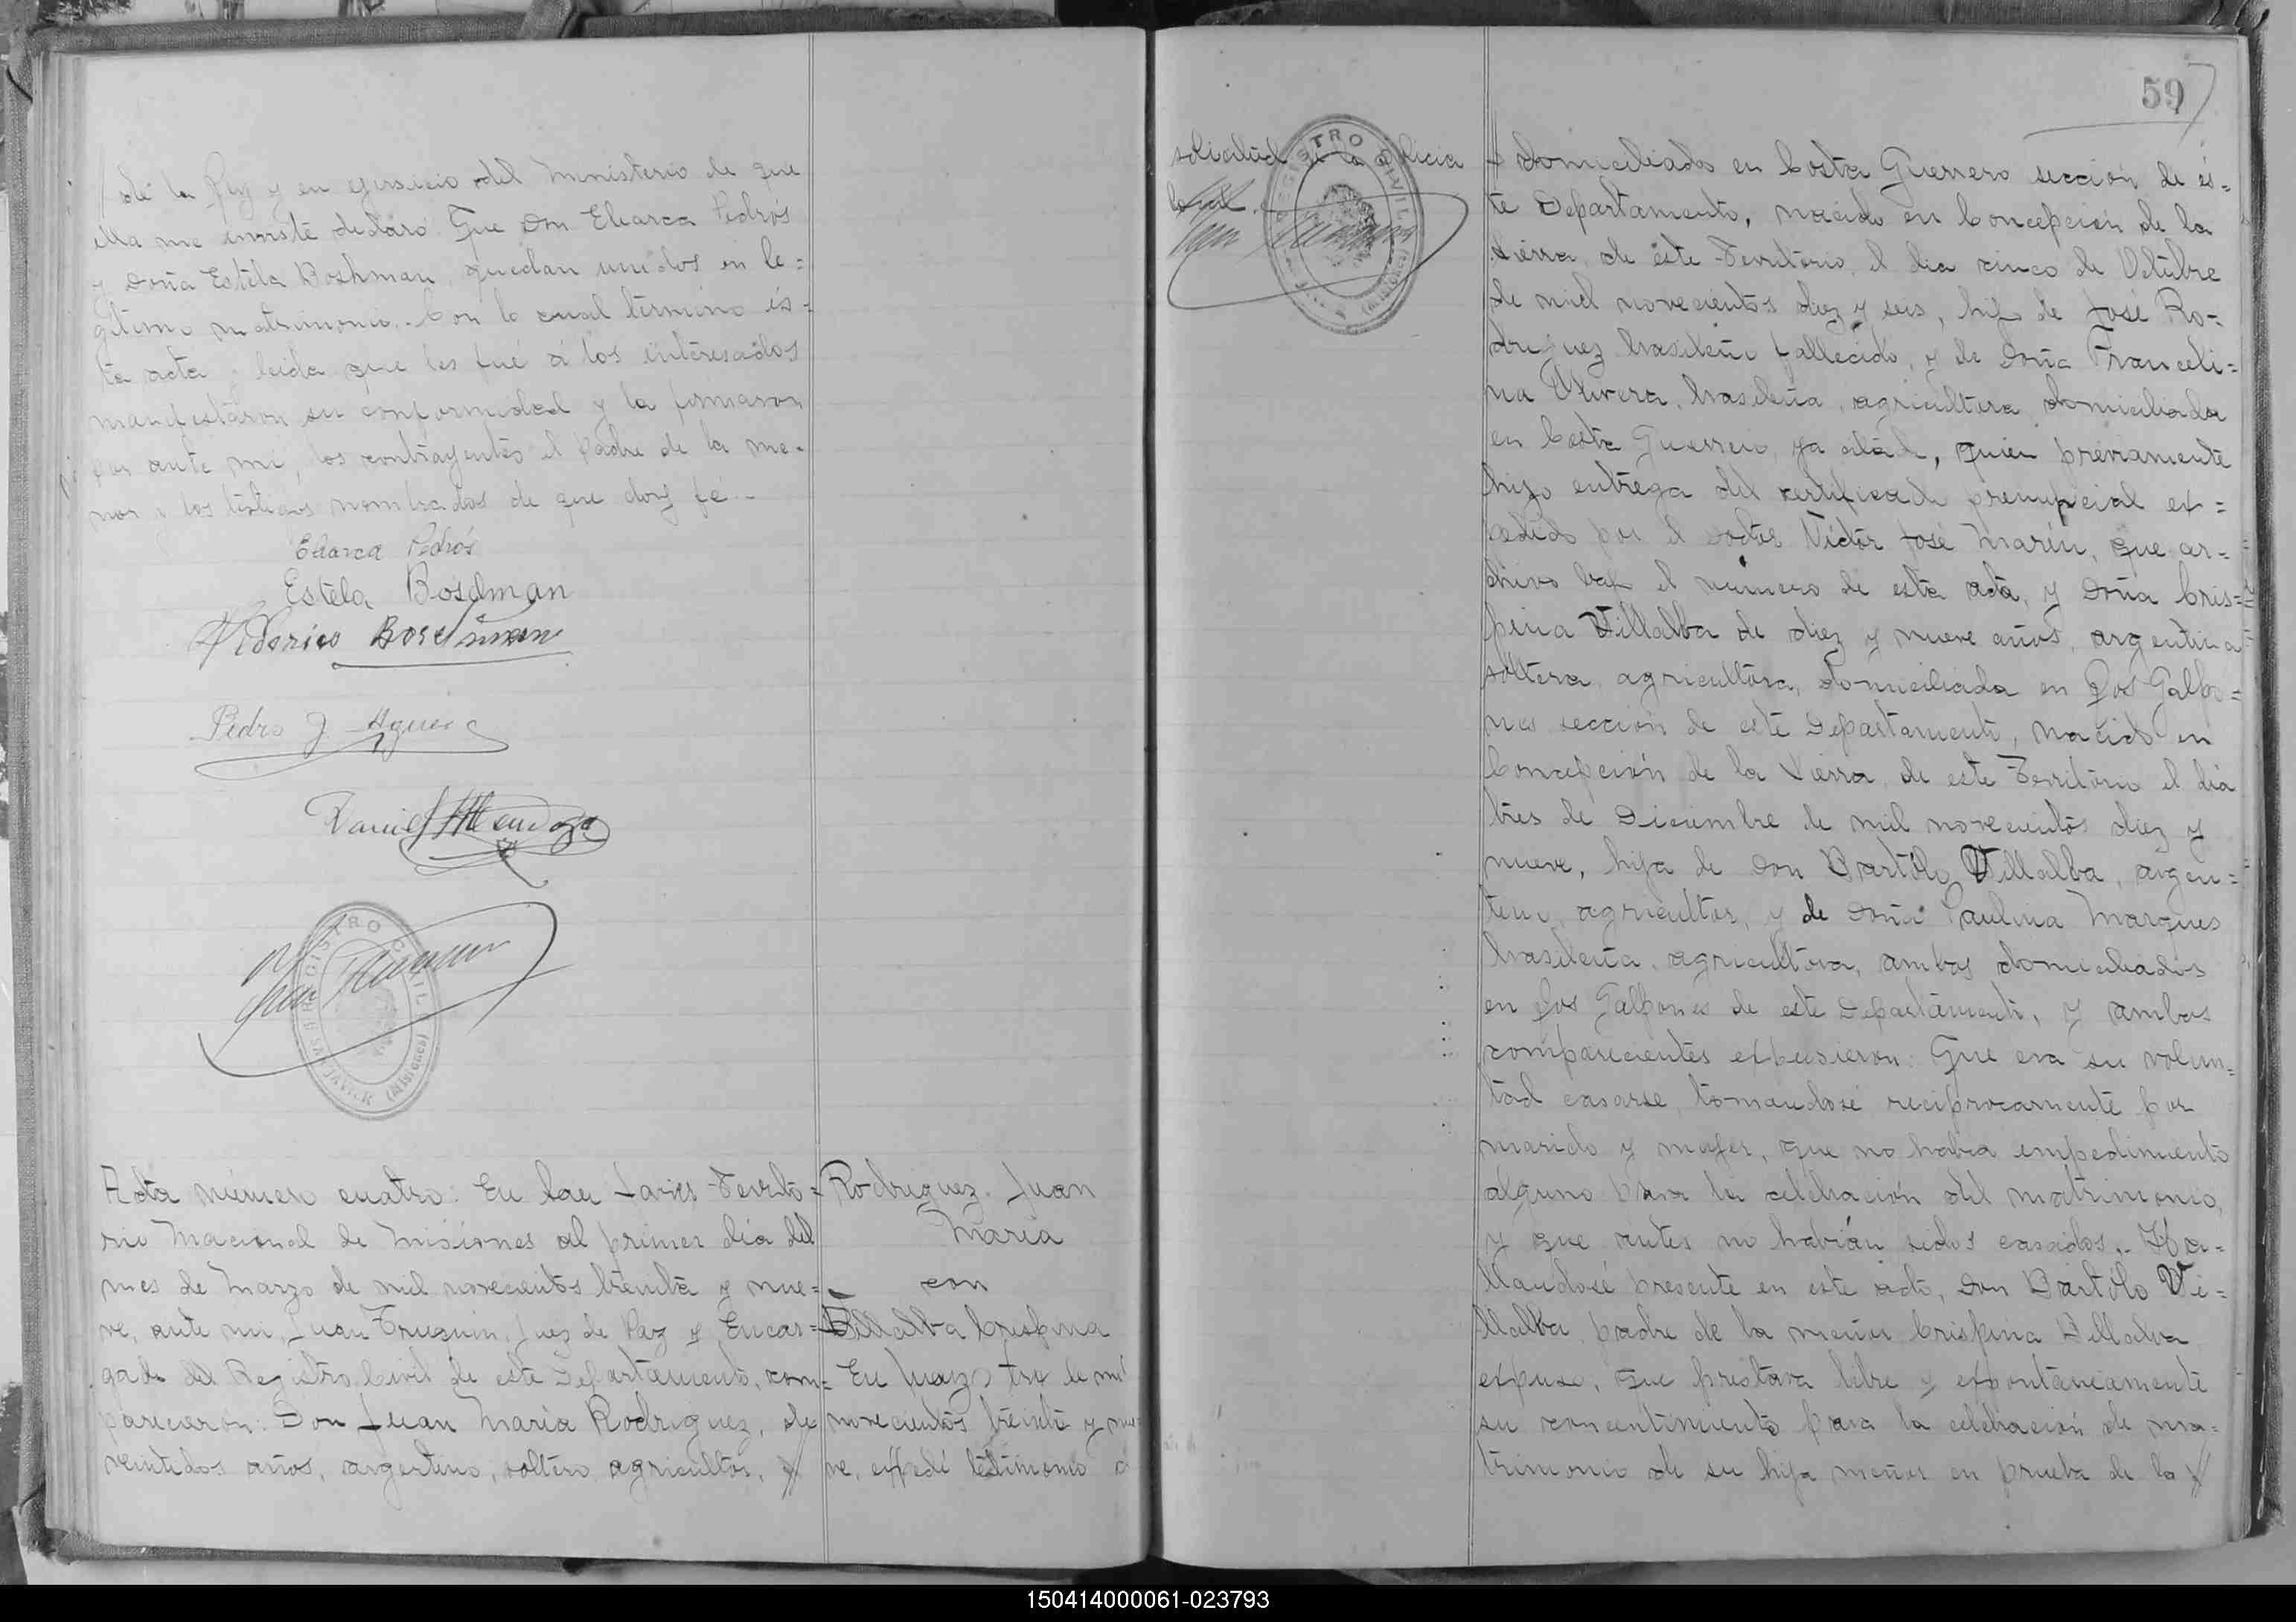 de la Ley y en ejersicio del Ministerio de que
ella me inviste declaro Que Don Eliarca Pedrós
y Doña Estela Boshman, quedan unidos en le=
gitimo matrimonio.- Con lo cual términó és=
ta acta y leida que les fué á los interesados
manifestaron su conformidad y la firmaron
por ante mi, los contrayentes el padre de la me-
nor y los testigos nombrados de que doy fé.-
Eliarca Pedrós
Estela Boschman
Federico Boschman
Pedro J. Aguer
Daniel Mendoza
REGISTRO CIVIL
SAN JAVIER (Misiones)
Acta número cuatro: En San Javier Territo=
rio Nacional de Misiones al primer dia del
mes de Marzo de mil novecientos treinta y nue=
ve, ante mi, Juan Truquin, Juez de Paz y Encar=
gado del Registro Civil de este Departamento, com=
parecieron: Don Juan Maria Rodriguez, de
veintidos años, argentino, soltero, agricultor,
Rodriguez Juan
Maria
con
Villalba Crispina
En Marzo tres de mil
novecientos treinta y nue
ve, expedí testimonio á
59
solicitud de la policia
local.
REGISTRO CIVIL
(Misiones)
domiciliado en Costa Guerrero sección de és=
te Departamento, nacido en Concepción de la
Sierra de éste Territorio, el dia cinco de Octubre
de mil novecientos diez y seis, hijo de José Ro=
driguez brasileño fallecido, y de Doña Franceli=
na Olivera, brasileña, agricultora domiciliada
en Costa Guerrero ya citada, quien préviamente
hizo entrega del certificado prenupcial ex=
pedido por el doctor Victor José Marin, que ar=
chivo bajo el número de esta acta, y Doña Cris=
pina Villalba de diez y nueve años, argentina
soltera, agricultora, domiciliada en Los Galpo=
nes sección de este Departamento, nacida en
Concepción de la Sierra de este Territorio el dia
tres de Diciembre de mil novecientos diez y
nueve, hija de Don Bartólo Villalba, argen=
tino, agricultor, y de Doña Paulina Marques
brasileña, agricultora, ambos domiciliados
en Los Galpones de este Departamento, y ambos
comparecientes expusieron: Que era su volun=
tad casarse, tomandosé reciprocamente por
marido y mujer, que no habia impedimento
alguno para la celebración del matrimonio,
y que antes no habián sidos casados.- Ha=
llandosé presente en este acto, Don Bartólo Vi=
llalba, padre de la menor Crispina Villalba
expuso, que prestava libre y expontáneamente
su concentimiento para la celebración de ma=
trimonio de su hija menor en prueba de lo
150414000061-023793